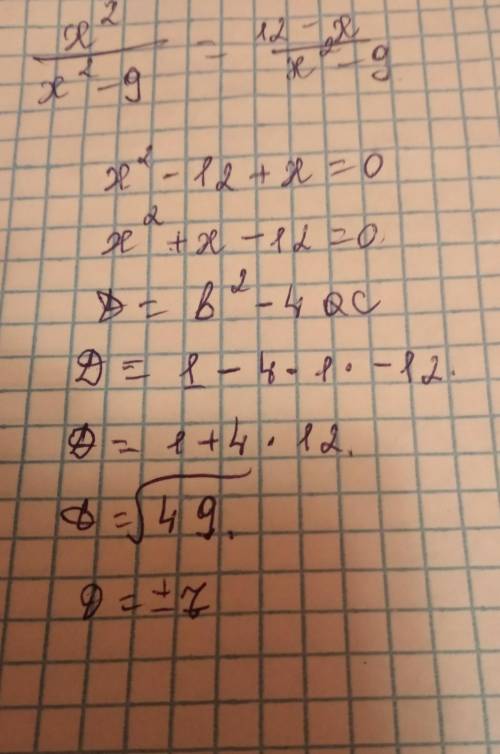 x²/(x² - 9) = (12 - x)/(x² - 9)
x² - 12 + x = 0
x² + x - 12 = 0.
D = b² - 4ac
D = 1 - 4 · 1 · -12.
D = 1 + 4 · 12.
D = √49.
D = ± 7